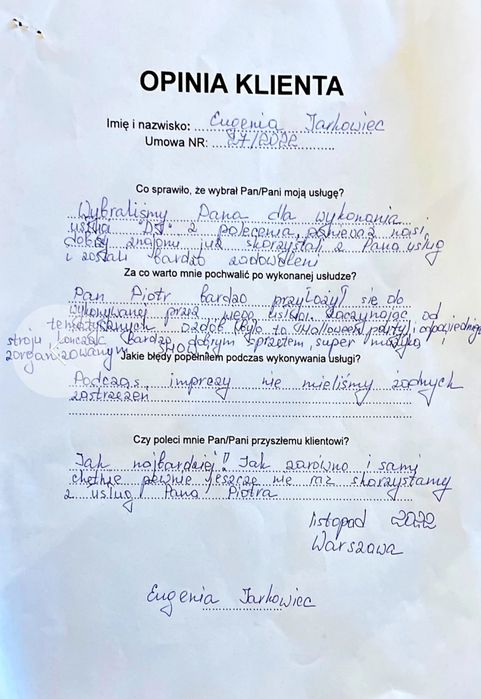 OPINIA KLIENTA
Imię i nazwisko: Eugenia Jarkowiec
Umowa NR: 27/2022
Co sprawiło, że wybrał Pan/Pani moją usługę?
Wybraliśmy Pana dla wykonania
usługi DJ z polecenia, ponieważ nasi
dobzy znajomi już skorzystali z Pana usług
i zostali bardzo zadowoleni
Za co warto mnie pochwalić po wykonanej usłudze?
Pan Piotr bardzo przyłożył się do
wykonywanej przez niego usługi. Zaczynając od
tematycznych ozdób (było to Halloween party) i odpowiedniego
stroju, kończąc bardzo dobrym sprzętem, super muzyką i
zorganizowanym show
Jakie błędy popełniłem podczas wykonywania usługi?
Podczas imprezy nie mieliśmy żadnych
zastrzeżeń
Czy poleci mnie Pan/Pani przyszłemu klientowi?
Jak najbardziej! Jak zarówno i sami
chętnie pewnie jeszcze nie raz skorzystamy
z usług Pana Piotra
listopad 2022
Warszawa
Eugenia Jarkowiec